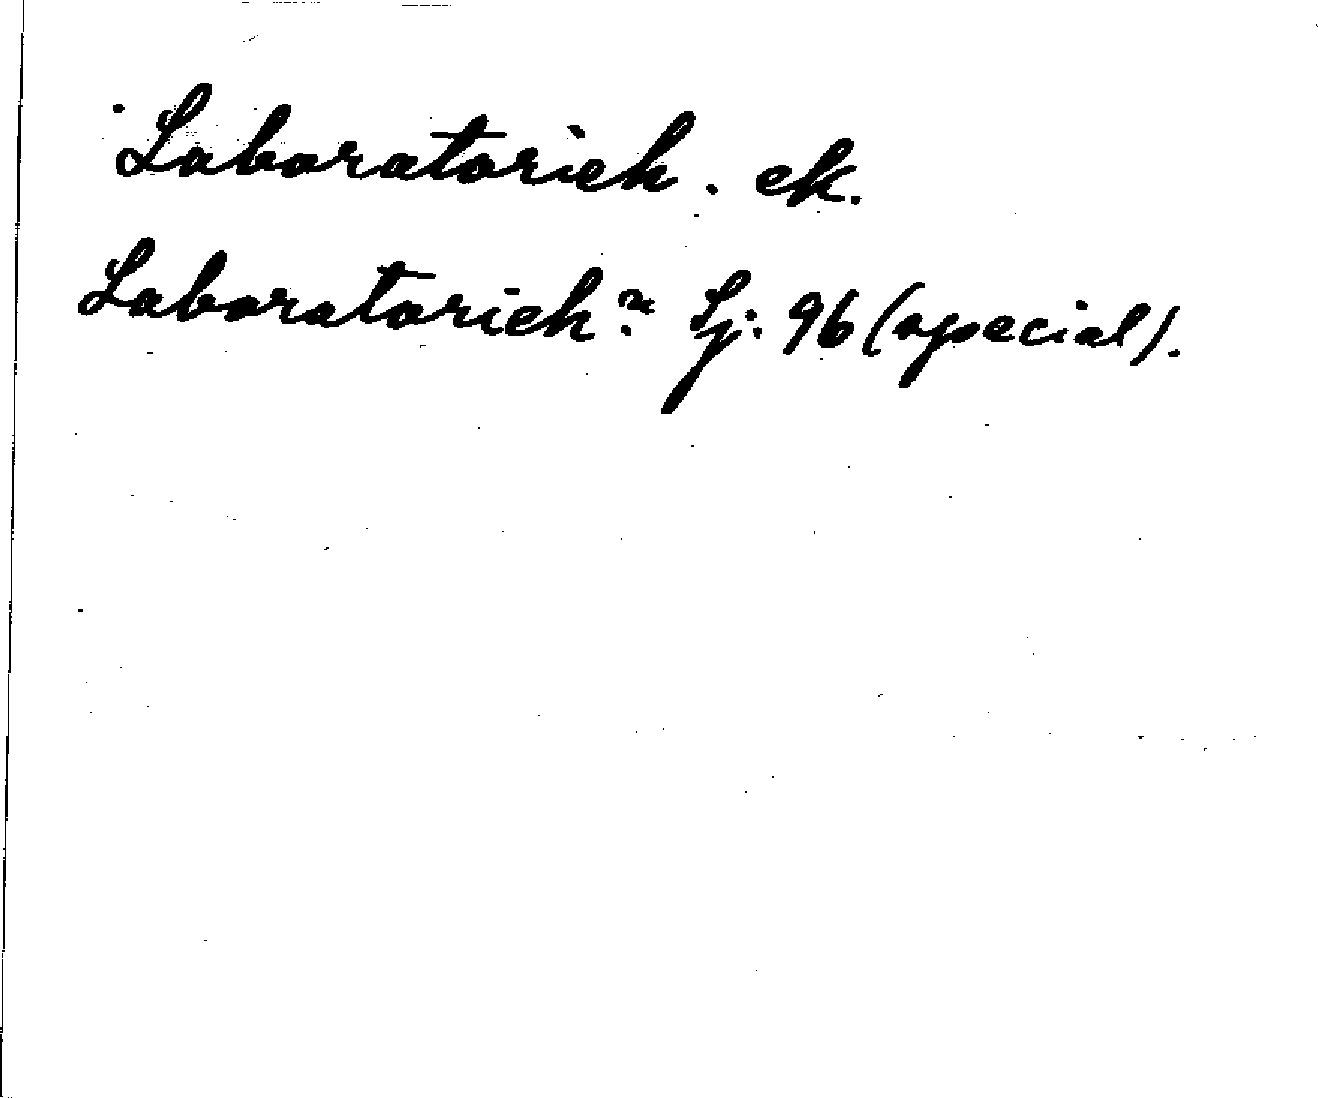 Laboratorieh. ek.
Laboratorieh:n Sj: 96 (special).